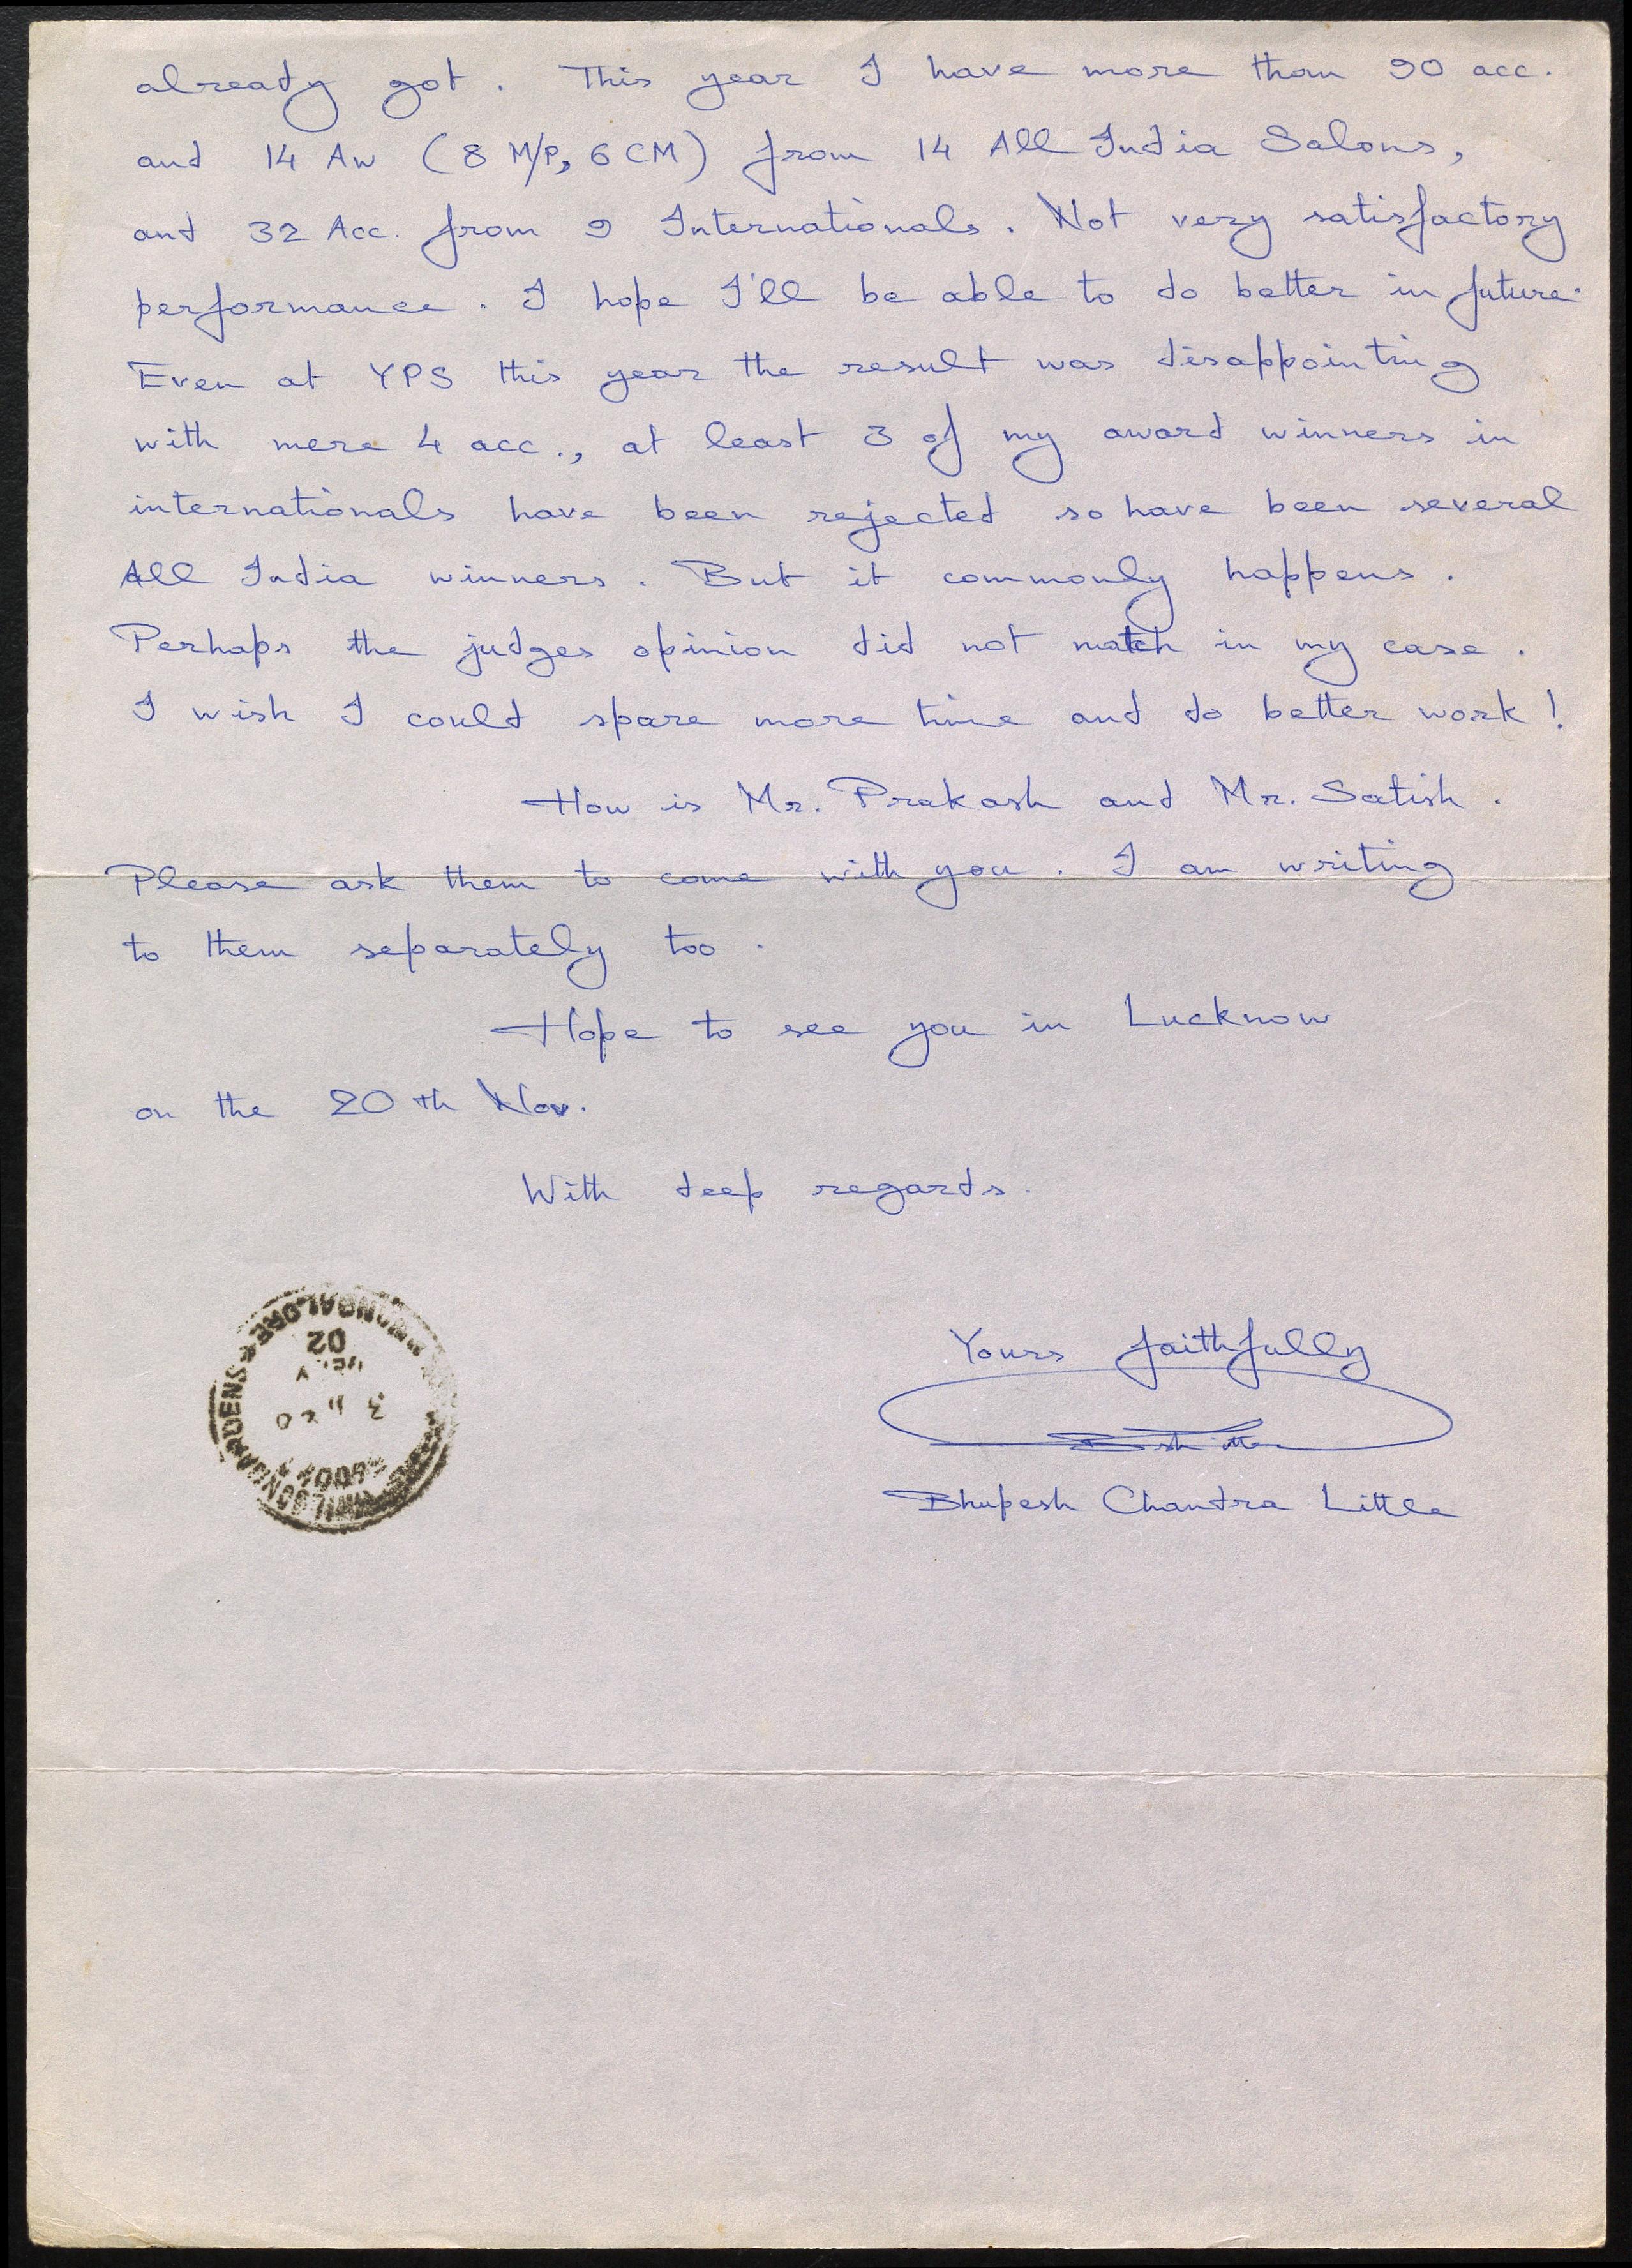 already got. This year I have more than 90 acc.
and 14 Aw (8 M/P, 6 CM) from 14 All India Salons,
and 32 Acc. from 9 Internationals. Not very satisfactory
performance. I hope I'll be able to do better in future.
Even at YPS this year the result was disappointing
with mere 4 acc., at least 3 of my award winners in
internationals have been rejected so have been several
All India winners. But it commonly happens.
Perhaps the judges opinion did not match in my case.
I wish I could spare more time and do better work!
How is Mr. Prakash and Mr. Satish.
Please ask them to come with you. I am writing
to them separately too.
Hope to see you in Lucknow
on the 20th Nov.
With deep regards.
Yours faithfully
Bhupesh Chandra Little
BANGALORE
02
GARDENS